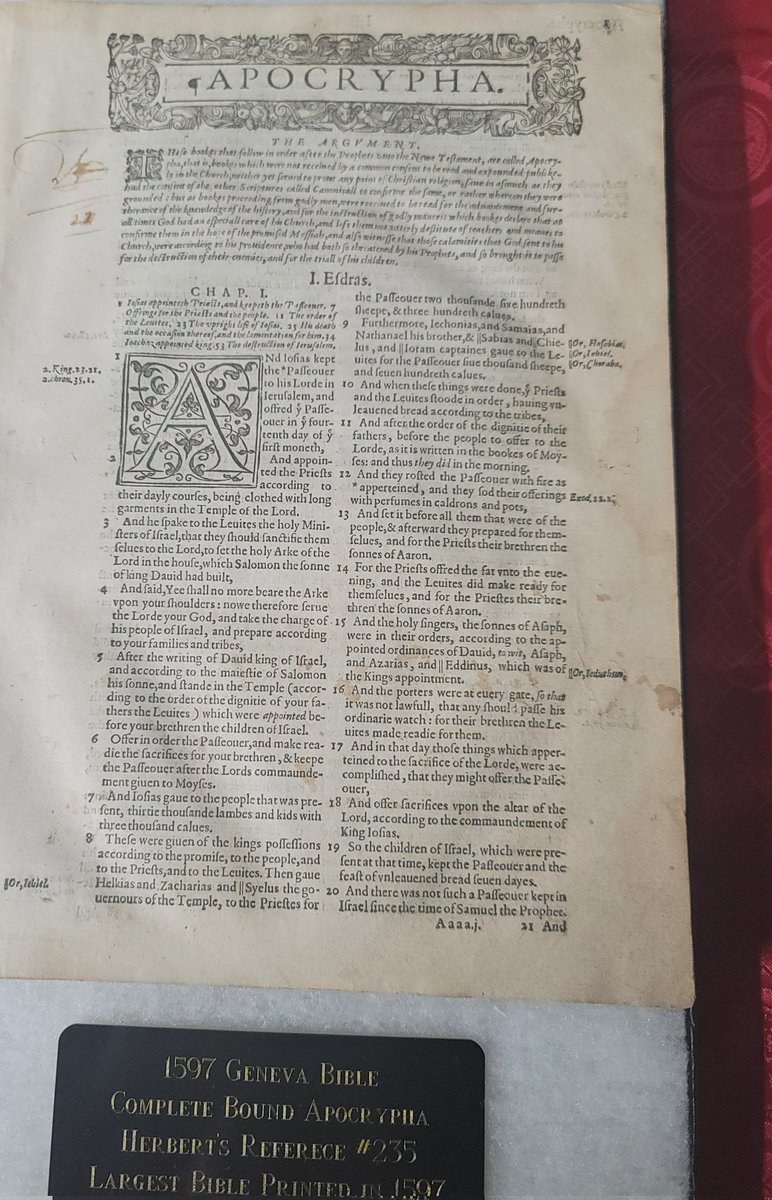 ¶APOCRYPHA.
THE ARGVMENT.
THese bookes that follow in order after the Prophets vnto the Newe Testament, are called Apocry-
pha, that is, bookes which were not receiued by a common consent to be read and expounded publike-
ly in the Church, neither yet serued to proue any point of Christian religion, saue in asmuch as they
had the consent of the other Scriptures called Canonicall to confirme the same, or rather whereon they were
grounded: but as bookes proceeding from godly men, were receiued to be read for the aduancement and fur-
therance of the knowledge of the history, and for the instruction of godly maners: which bookes declare that at
all times God had an especiall care of his Church, and left them not vtterly destitute of teachers and meanes to
confirme them in the hope of the promised Messiah, and also witnesse that those calamities that God sent to his
Church, were according to his prouidence, who had both so threatened by his Prophets, and so brought it to passe
for the destruction of their enemies, and for the triall of his children.
I. Esdras.
CHAP. I.
1 Iosias appointeth Priests, and keepeth the Passeouer. 7
Offrings for the Priests and the people. 11 The order of
the Leuites. 23 The vpright life of Iosias. 25 His death
and the occasion thereof, and the lamentation for him. 34
Ioachaz appointed king. 53 The destruction of Ierusalem.
2. King. 23. 21.
2. chron. 35. 1.
1 AND Iosias kept
the *Passeouer
to his Lorde in
Ierusalem, and
offred ẏ Passe-
ouer in ẏ four-
tenth day of ẏ
first moneth,
2 And appoin-
ted the Priests
according to
their dayly courses, being clothed with long
garments in the Temple of the Lord.
3 And he spake to the Leuites the holy Mini-
sters of Israel, that they should sanctifie them
selues to the Lord, to set the holy Arke of the
Lord in the house, which Salomon the sonne
of king Dauid had built,
4 And said, Yee shall no more beare the Arke
vpon your shoulders: nowe therefore serue
the Lorde your God, and take the charge of
his people of Israel, and prepare according
to your families and tribes,
5 After the writing of Dauid king of Israel,
and according to the maiestie of Salomon
his sonne, and stande in the Temple (accor-
ding to the order of the dignitie of your fa-
thers the Leuites) which were appointed be-
fore your brethren the children of Israel.
6 Offer in order the Passeouer, and make rea-
die the sacrifices for your brethren, & keepe
the Passeouer after the Lords commaunde-
ment giuen to Moyses.
7 And Iosias gaue to the people that was pre-
sent, thirtie thousande lambes and kids with
three thousand calues.
8 These were giuen of the kings possessions
according to the promise, to the people, and
to the Priests, and to the Leuites. Then gaue
Helkias and Zacharias and ||Syelus the go-
uernours of the Temple, to the Priestes for
||Or, Iehiel.
the Passeouer two thousande sixe hundreth
sheepe, & three hundreth calues.
9 Furthermore, Iechonias, and Samaias, and
Nathanael his brother, & ||Sabias and ||Chie-
lus, and ||Ioram captaines gaue to the Le-
uites for the Passeouer fiue thousand sheepe,
and seuen hundreth calues.
||Or, Hasabias.
||Or, Iehiel.
||Or, Choraba.
10 And when these things were done, ẏ Priests
and the Leuites stoode in order, hauing vn-
leauened bread according to the tribes,
11 And after the order of the dignitie of their
fathers, before the people to offer to the
Lorde, as it is written in the bookes of Moy-
ses: and thus they did in the morning.
12 And they rosted the Passeouer with fire as
*apperteined, and they sod their offerings
with perfumes in caldrons and pots,
Exod. 12. 8.
13 And set it before all them that were of the
people, & afterward they prepared for them-
selues, and for the Priests their brethren the
sonnes of Aaron.
14 For the Priests offred the fat vnto the eue-
ning, and the Leuites did make ready for
themselues, and for the Priestes their bre-
thren the sonnes of Aaron.
15 And the holy singers, the sonnes of Asaph,
were in their orders, according to the ap-
pointed ordinances of Dauid, to wit, Asaph,
and Azarias, and ||Eddinus, which was of
the Kings appointment.
||Or, Ieduthun.
16 And the porters were at euery gate, so that
it was not lawfull, that any should passe his
ordinarie watch: for their brethren the Le-
uites made readie for them.
17 And in that day those things which apper-
teined to the sacrifice of the Lorde, were ac-
complished, that they might offer the Passe-
ouer,
18 And offer sacrifices vpon the altar of the
Lord, according to the commaundement of
King Iosias.
19 So the children of Israel, which were pre-
sent at that time, kept the Passeouer and the
feast of vnleauened bread seuen dayes.
20 And there was not such a Passeouer kept in
Israel since the time of Samuel the Prophet.
Aaaa.j. 21 And
1597 GENEVA BIBLE
COMPLETE BOUND APOCRYPHA
HERBERT'S REFERECE #235
LARGEST BIBLE PRINTED IN 1597